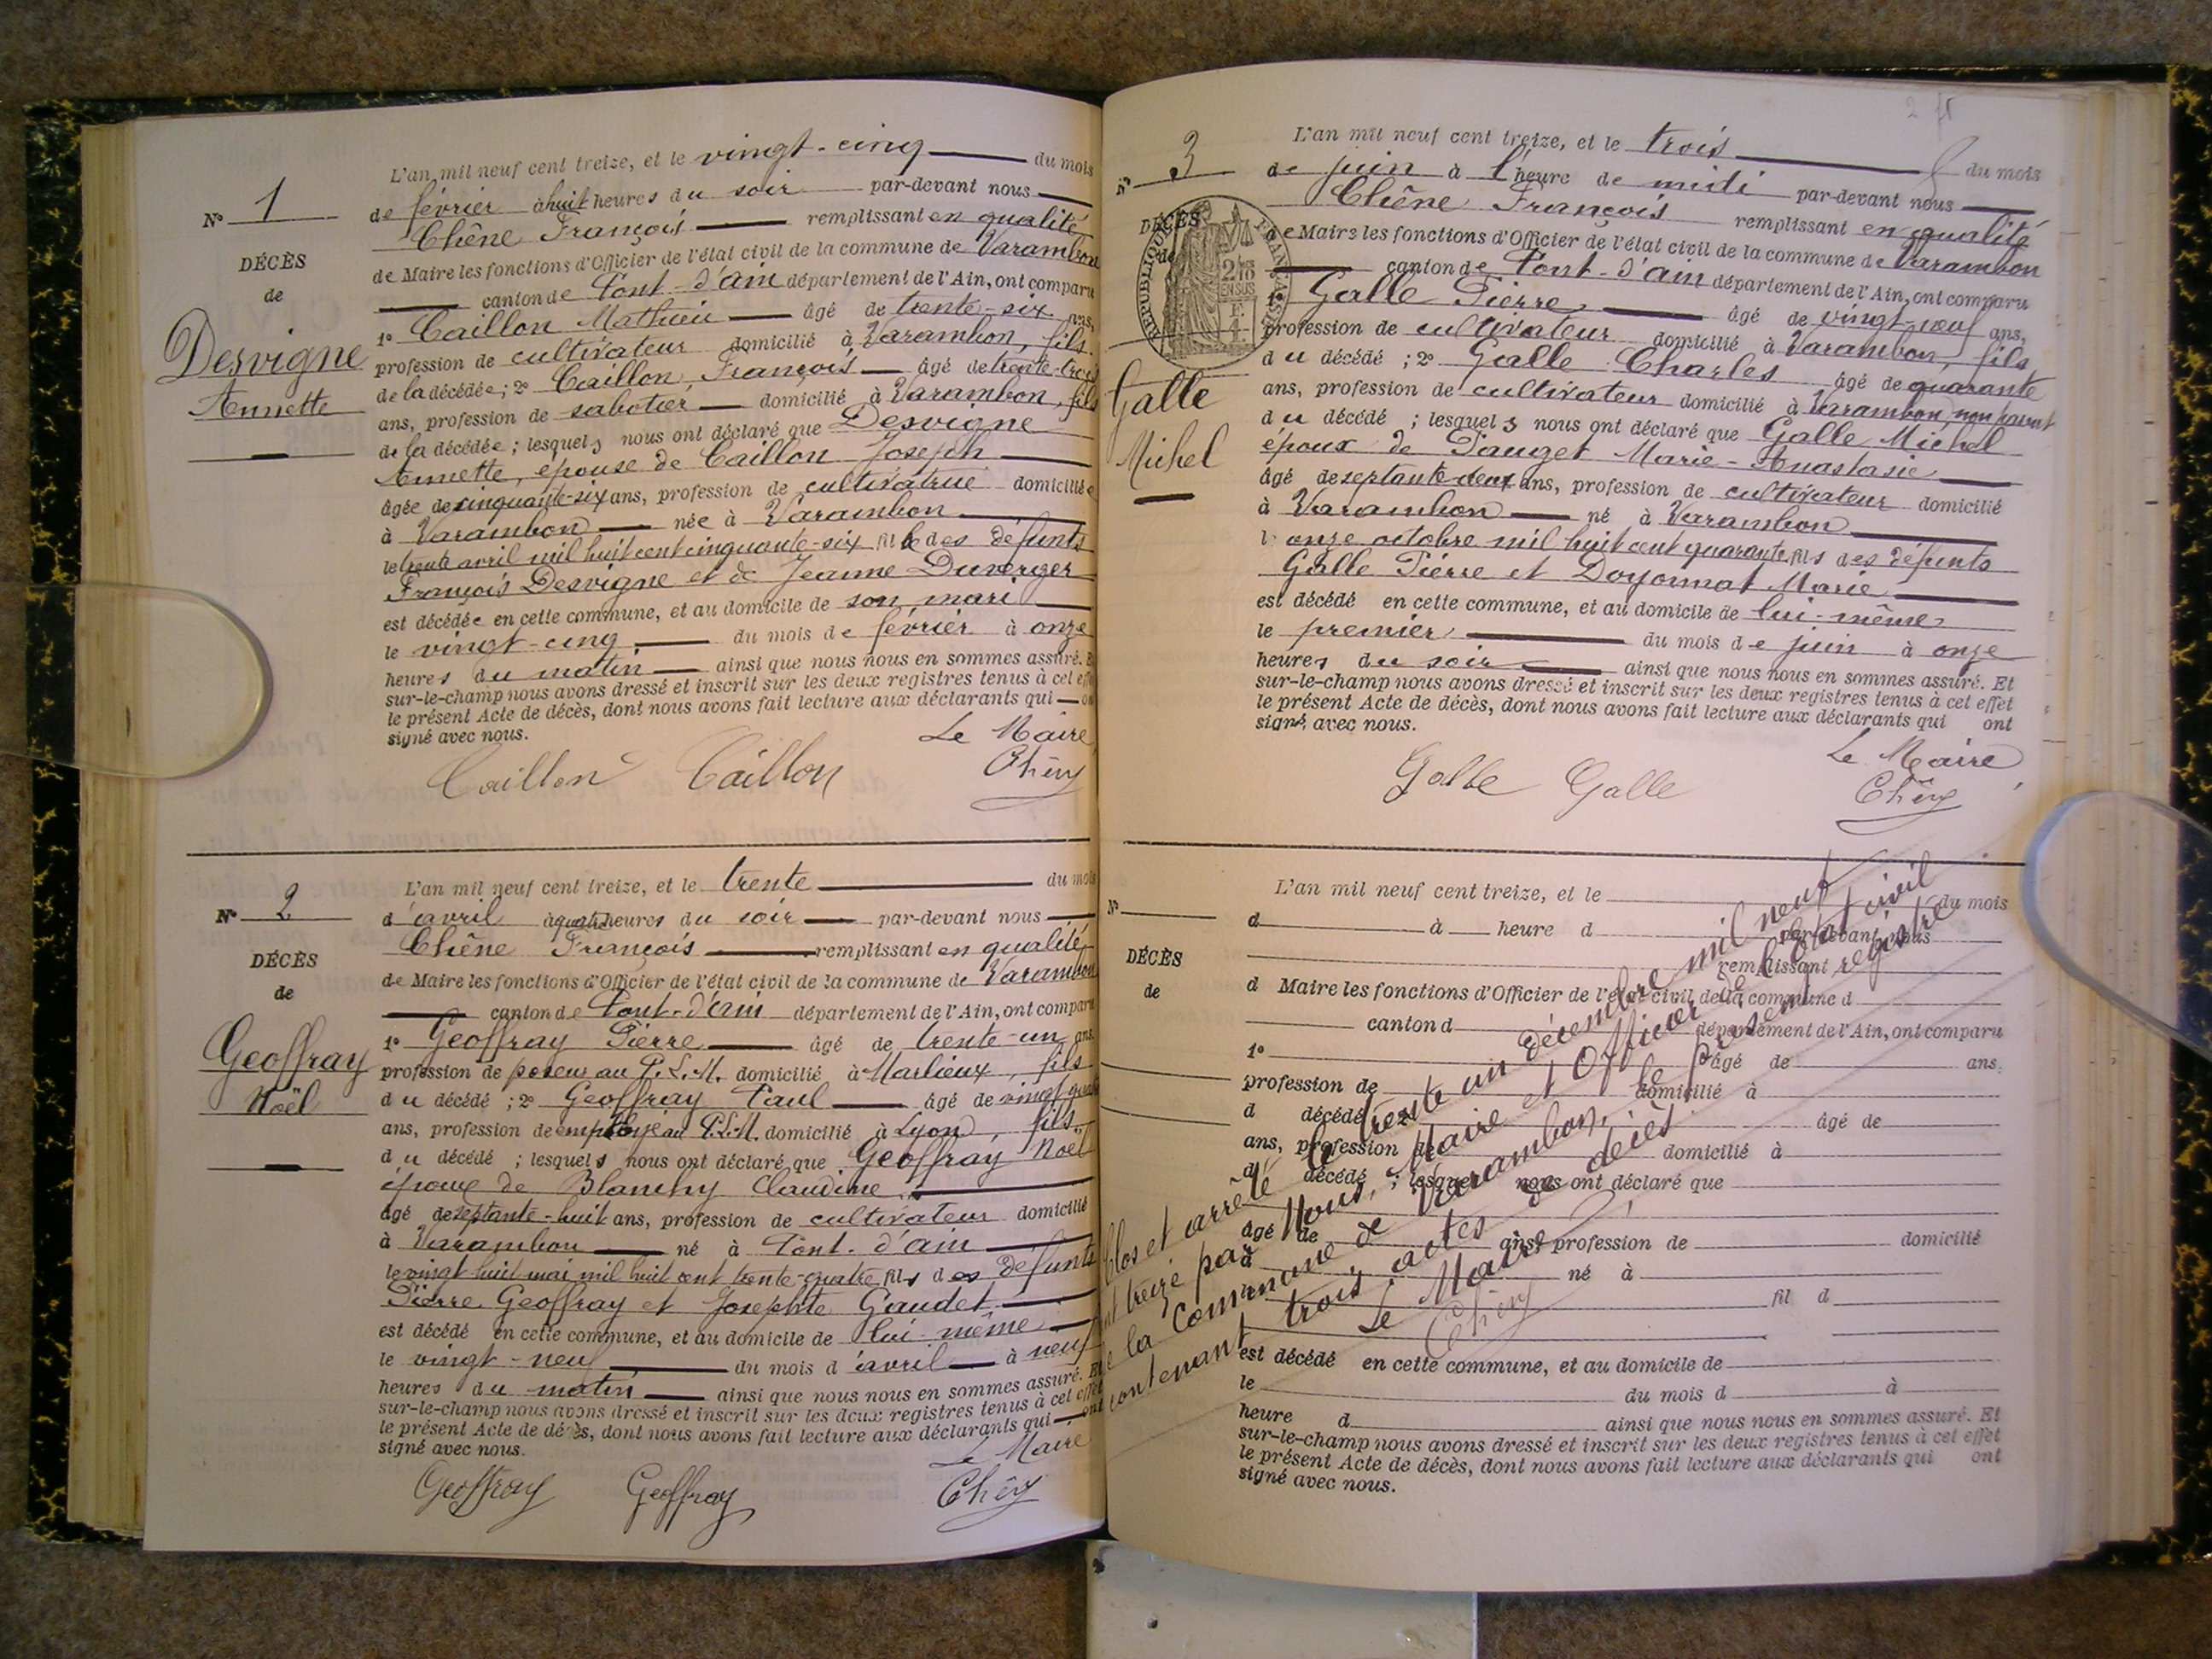 L'an mil neuf cent treize, et le vingt-cinq du mois
N° 1
de février à huit heures du soir par-devant nous
Chêne François remplissant en qualité
DÉCÈS
de Maire les fonctions d'Officier de l'état civil de la commune de Varambon
de
canton de Pont-d'ain département de l'Ain, ont comparu
1° Caillon Mathieu âgé de trente-six ans,
Desvigne
profession de cultivateur domicilié à Varambon, fils
de la décédée; 2° Caillon François âgé de trente-trois
Annette
ans, profession de sabotier domicilié à Varambon, fils
de la décédée; lesquels nous ont déclaré que Desvigne
Annette, épouse de Caillon Joseph
âgée de cinquante-six ans, profession de cultivatrice domiciliée
à Varambon née à Varambon
le trente avril mil huit cent cinquante-six fille des défunts
François Desvigne et de Jeanne Duverger
est décédée en cette commune, et au domicile de son mari
le vingt-cinq du mois de février à onze
heures du matin ainsi que nous nous en sommes assuré. Et
sur-le-champ nous avons dressé et inscrit sur les deux registres tenus à cet effet
le présent Acte de décès, dont nous avons fait lecture aux déclarants qui ont
signé avec nous.
Le Maire
Caillon Caillon Chêne
L'an mil neuf cent treize, et le trente du mois
N° 2
d'avril à quatre heures du soir par-devant nous
Chêne François remplissant en qualité
DÉCÈS
de Maire les fonctions d'Officier de l'état civil de la commune de Varambon
de
canton de Pont-d'ain département de l'Ain, ont comparu
1° Geoffray Pierre âgé de trente-un ans,
Geoffray
profession de poseur au P.L.M. domicilié à Marlieux, fils
Noël
du décédé; 2° Geoffray Paul âgé de vingt quatre
ans, profession de employé au P.L.M. domicilié à Lyon, fils
du décédé; lesquels nous ont déclaré que Geoffray Noël
époux de Blanchy Claudine
âgé de septante-huit ans, profession de cultivateur domicilié
à Varambon né à Pont-d'ain
le vingt huit mai mil huit cent trente-quatre, fils des défunts
Pierre Geoffray et Josephte Gaudet
est décédé en cette commune, et au domicile de lui-même
le vingt-neuf du mois d'avril à neuf
heures du matin ainsi que nous nous en sommes assuré. Et
sur-le-champ nous avons dressé et inscrit sur les deux registres tenus à cet effet
le présent Acte de décès, dont nous avons fait lecture aux déclarants qui ont
signé avec nous.
Le Maire
Geoffray Geoffray Chêne
L'an mil neuf cent treize, et le trois du mois
N° 3
de juin à l'heure de midi par-devant nous
Chêne François remplissant en qualité
DÉCÈS
de
RÉPUBLIQUE FRANÇAISE
de Maire les fonctions d'Officier de l'état civil de la commune de Varambon
canton de Pont-d'ain département de l'Ain, ont comparu
1° Galle Pierre âgé de vingt-neuf ans,
profession de cultivateur domicilié à Varambon, fils
du décédé; 2° Galle Charles âgé de quarante
Galle
ans, profession de cultivateur domicilié à Varambon, non parent
du décédé; lesquels nous ont déclaré que Galle Michel
Michel
époux de Pauget Marie-Anastasie
âgé de septante deux ans, profession de cultivateur domicilié
à Varambon né à Varambon
l'onze octobre mil huit cent quarante fils des défunts
Galle Pierre et Doyonnat Marie
est décédé en cette commune, et au domicile de lui-même
le premier du mois de juin à onze
heures du soir ainsi que nous nous en sommes assuré. Et
sur-le-champ nous avons dressé et inscrit sur les deux registres tenus à cet effet
le présent Acte de décès, dont nous avons fait lecture aux déclarants qui ont
signé avec nous.
Le Maire
Galle Galle Chêne
L'an mil neuf cent treize, et le du mois
N°
d à heure d par-devant nous
remplissant
DÉCÈS
d Maire les fonctions d'Officier de l'état civil de la commune d
de
canton d département de l'Ain, ont comparu
1° âgé de ans,
profession de domicilié à
d décédé ; 2° âgé de
ans, profession de domicilié à
d décédé ; lesquel nous ont déclaré que
âgé de ans, profession de domicilié
à né à
fil d
est décédé en cette commune, et au domicile de
le du mois d à
heure d ainsi que nous nous en sommes assuré. Et
sur-le-champ nous avons dressé et inscrit sur les deux registres tenus à cet effet
le présent Acte de décès, dont nous avons fait lecture aux déclarants qui ont
signé avec nous.
Clos et arrêté le trente un décembre mil neuf
cent treize par Nous, Maire et Officier de l'état civil
de la Commune de Varambon, le présent registre
contenant trois actes de décès
Le Maire
Chêne